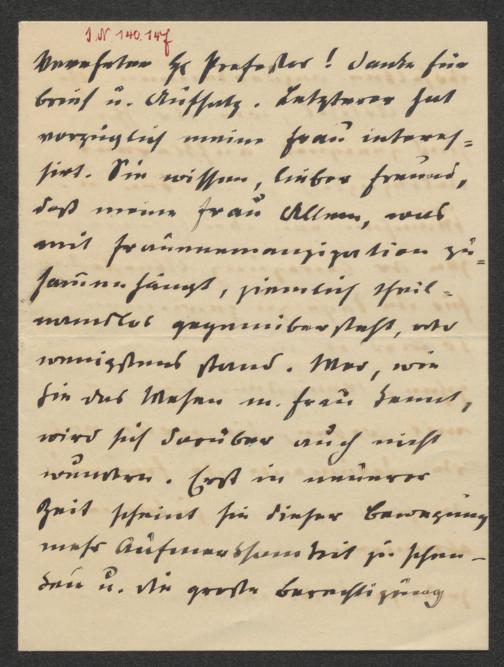 I.N 140.147
Verehrter H Professor! Danke für
Brief u. Aufsatz. Letzterer hat
vorzüglich meine Frau interes=
sirt. Sie wissen, lieber Freund,
daß meine Frau Allem, was
mit Frauenemanzipation zu=
sam̄enhängt, ziemlich theil=
namslos gegenübersteht, oder
wenigstens stand. Wer, wie
Sie das Wesen m. Frau kennt,
wird sich darüber auch nicht
wundern. Erst in neuerer
Zeit scheint sie dieser Bewegung
mehr Aufmerksamkeit zu schen-
ken u. die große Berechtigung